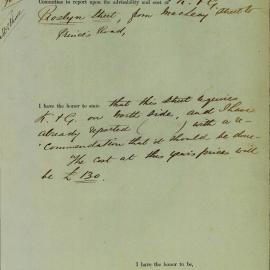 Committee to report upon the advisability and cost of K. & G.
Roslyn Street, from Macleay Street to
Prince's Road,
I have the honor to state that this Street requires
K. & G. on North side, and I have
already reported ( ) with a re-
commendation that it should be done.
The cost at this year's prices will
be £ 130.
I have the honor to be,